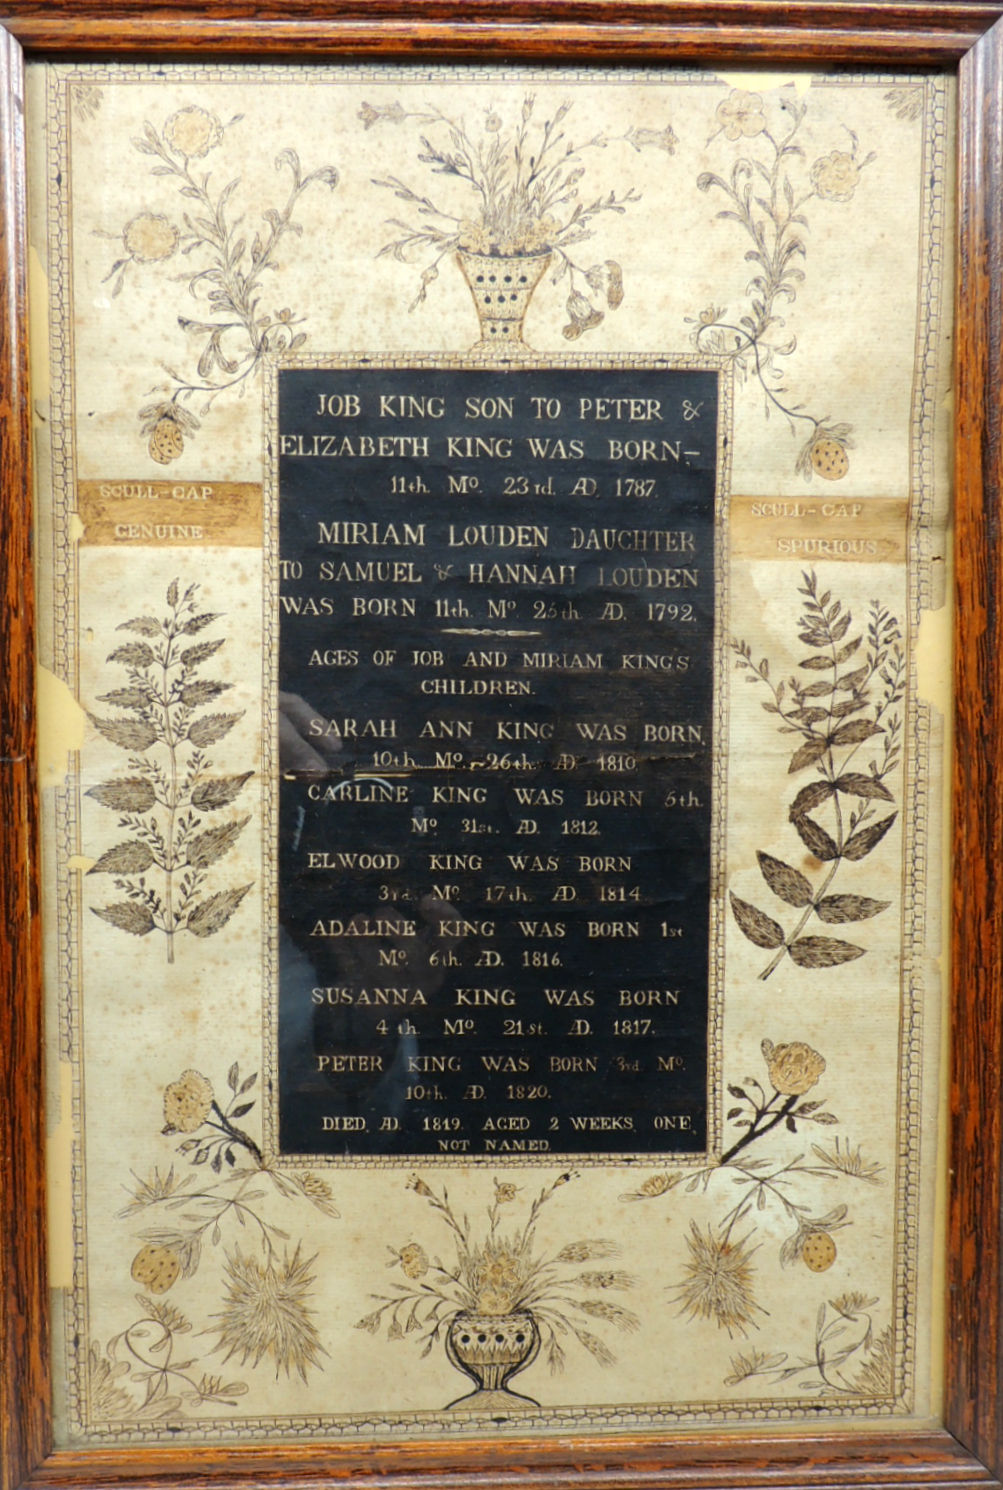 JOB KING SON TO PETER &
ELIZABETH KING WAS BORN–
11th. Mº. 23rd. AD. 1787.
MIRIAM LOUDEN DAUGHTER
TO SAMUEL & HANNAH LOUDEN
WAS BORN 11th. Mº. 25th. AD. 1792.
AGES OF JOB AND MIRIAM KING'S
CHILDREN.
SARAH ANN KING WAS BORN,
10th. Mº. 26th. AD. 1810.
CARLINE KING WAS BORN 5th.
Mº. 31st. AD. 1812.
ELWOOD KING WAS BORN
3rd. Mº. 17th. AD. 1814.
ADALINE KING WAS BORN 1st
Mº. 6th. AD. 1816.
SUSANNA KING WAS BORN
4th. Mº. 21st. AD. 1817.
PETER KING WAS BORN 3rd. Mº.
10th. AD. 1820.
DIED, AD. 1819. AGED 2 WEEKS, ONE,
NOT NAMED.
SCULL-CAP
GENUINE
SCULL-CAP
SPURIOUS